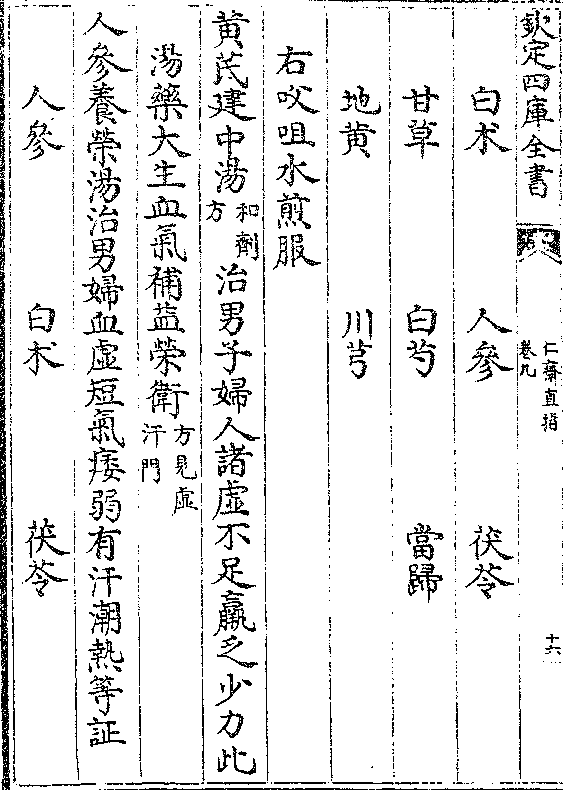 欽定四庫全書
仁齋直指
卷九
十六
白朮 人參 茯苓
甘草 白芍 當歸
地黄 川芎
右㕮咀水煎服
黄芪建中湯和劑方治男子婦人諸虛不足羸乏少力此
湯藥大生血氣補益榮衛方見虛汗門
人參養榮湯治男婦血虛短氣痿弱有汗潮熱等証
人參 白朮 茯苓